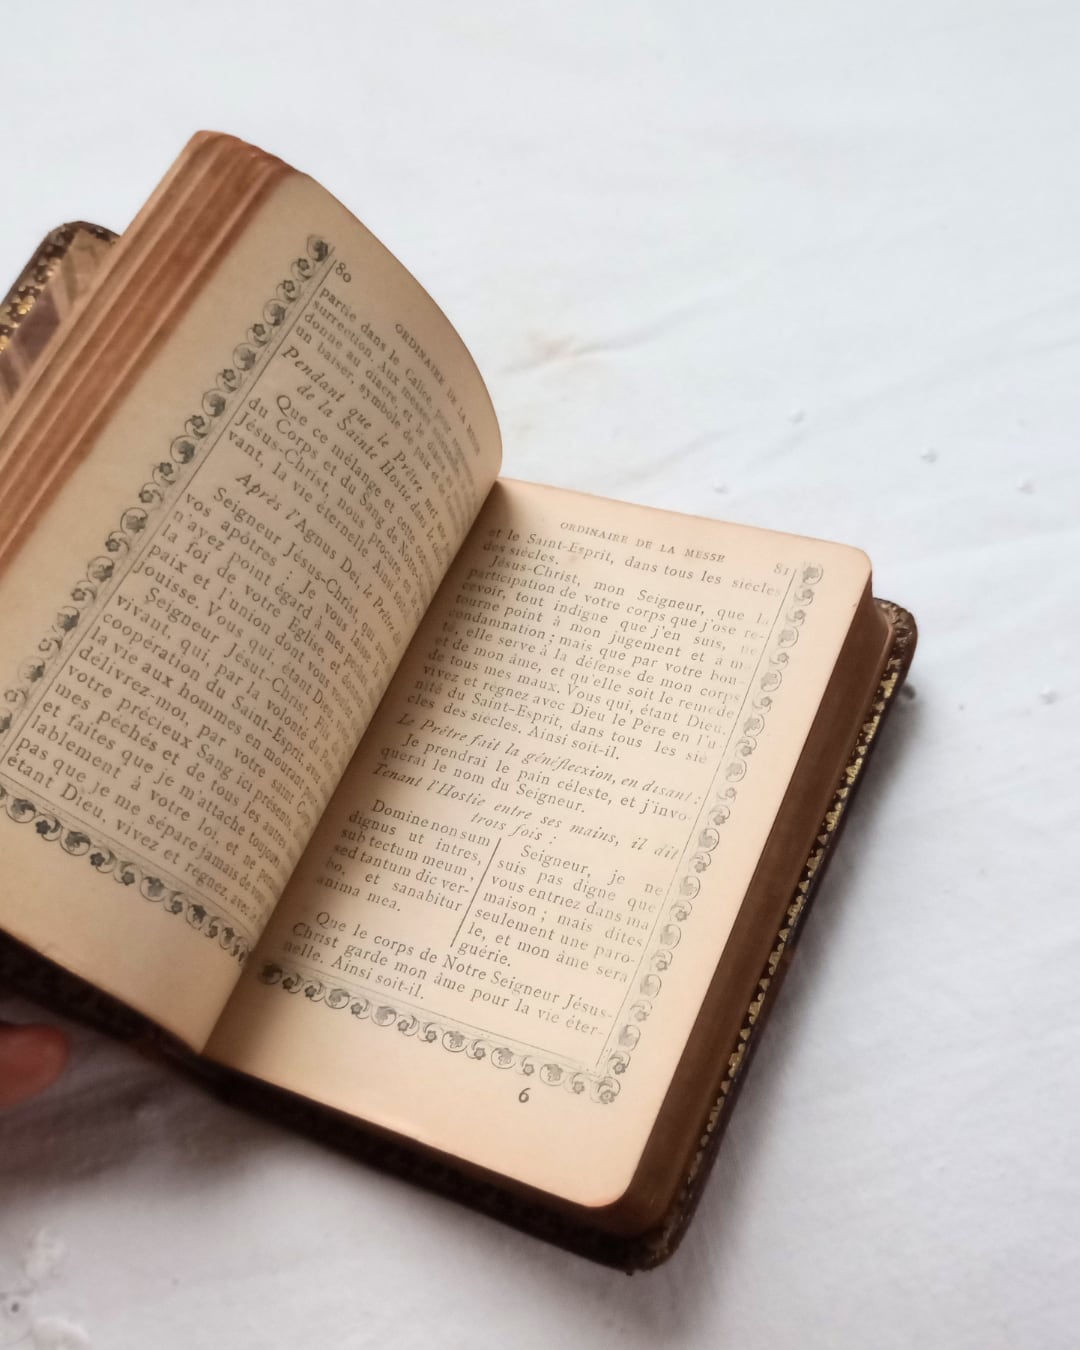 80 ORDINAIRE DE LA MESSE
partie dans le Calice, pour
surrection. Aux messes
donne au diacre, et le
un baiser, symbole de paix et de
Pendant que le Prêtre met
de la Sainte Hostie dans le
Que ce mélange et cette
du Corps et du Sang de Notre
Jésus-Christ, nous procure, en
vant, la vie éternelle. Ainsi soit
Après l'Agnus Dei, le Prêtre dit
Seigneur Jésus-Christ, qui avez
vos apôtres : Je vous laisse
n'ayez point égard à mes
la foi de votre Eglise, et donnez
paix et l'union dont vous voulez
jouisse. Vous qui, étant Dieu,
Seigneur Jésut-Christ, Fils
vivant, qui, par la volonté du
coopération du Saint-Esprit, avez
la vie aux hommes en mourant
délivrez-moi, par votre saint
votre précieux Sang ici présents,
mes péchés et de tous les autres
et faites que je m'attache toujours
lablement à votre loi, et ne
pas que je me sépare jamais de
étant Dieu, vivez et régnez, avec
ORDINAIRE DE LA MESSE 81
et le Saint-Esprit, dans tous les siècles
des siècles.
Jésus-Christ, mon Seigneur, que la
participation de votre corps que j'ose re-
cevoir, tout indigne que j'en suis, ne
tourne point à mon jugement et à ma
condamnation ; mais que par votre bon-
té, elle serve à la défense de mon corps
et de mon âme, et qu'elle soit le remède
de tous mes maux. Vous qui, étant Dieu,
vivez et régnez avec Dieu le Père en l'u-
nité du Saint-Esprit, dans tous les siè
cles des siècles. Ainsi soit-il.
Le Prêtre fait la généflecxion, en disant :
Je prendrai le pain céleste, et j'invo-
querai le nom du Seigneur.
Tenant l'Hostie entre ses mains, il dit
trois fois :
Domine non sum
dignus ut intres,
sub tectum meum,
sed tantum dic ver-
bo, et sanabitur
anima mea.
Seigneur, je ne
suis pas digne que
vous entriez dans ma
maison ; mais dites
seulement une paro-
le, et mon âme sera
guérie.
Que le corps de Notre Seigneur Jésus-
Christ garde mon âme pour la vie éter-
nelle. Ainsi soit-il.
6